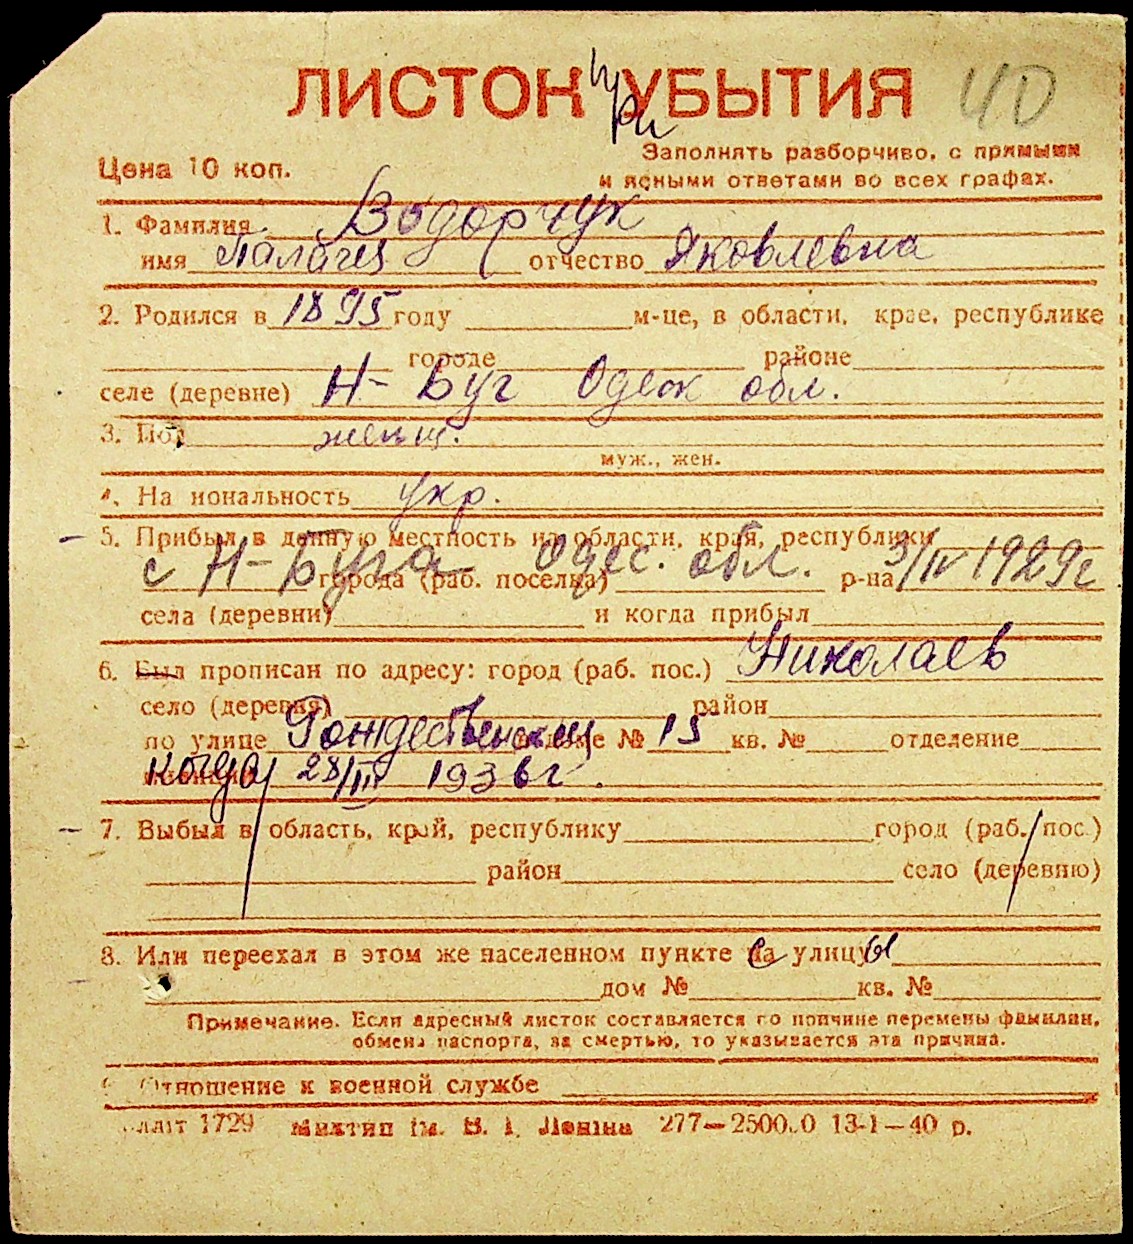 ЛИСТОК УБЫТИЯ
при
40
Цена 10 коп.
Заполнять разборчиво, с прямыми
и ясными ответами во всех графах.
1. Фамилия Водорчук
имя Палагея отчество Яковлевна
2. Родился в 1895 году м-це, в области, крае, республике
городе районе
селе (деревне) Н-Буг Одеск обл.
3. Пол женщ.
муж., жен.
4. На иональность укр.
5. Прибыл в данную местность из области, края, республики
с Н-Буга Одес. обл. 3/IV 1929г
города (раб. поселка) р-на
села (деревни) и когда прибыл
6. Был прописан по адресу: город (раб. пос.) Николаев
село (деревня) район
по улице Рождественская доме № 15 кв. № отделение
когда 28/III 1936г.
7. Выбыл в область, край, республику город (раб. пос.)
район село (деревню)
8. Или переехал в этом же населенном пункте на улицу
с ы
дом № кв. №
Примечание. Если адресный листок составляется по причине перемены фамилии,
обмена паспорта, за смертью, то указывается эта причина.
Отношение к военной службе
1729 им. В. І. Леніна 277—2500.0 13-1—40 р.